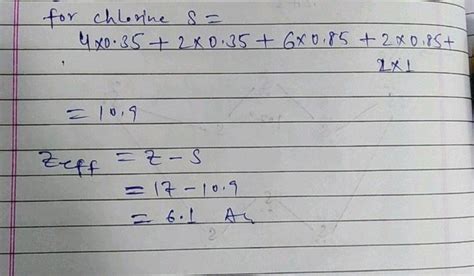 for chlorine S =
4×0.35 + 2×0.35 + 6×0.85 + 2×0.85 +
2×1
= 10.9
Zeff = Z - S
= 17 - 10.9
= 6.1 As